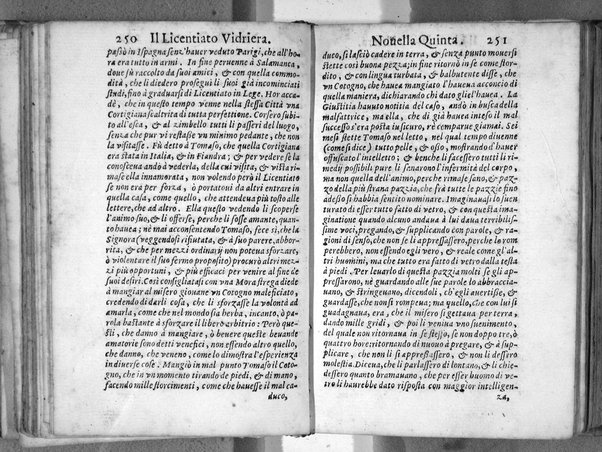 250 Il Licentiato Vidriera.
passò in Ispagna senz'hauer veduto Parigi, che all'ho
ra era tutto in armi. In fine peruenne à Salamanca,
doue fù raccolto da suoi amici, & con quella commo-
dità, che li diedero proseguì li suoi già incominciati
studi, fino à graduarsi di Licentiato in Lege. Hor acca-
dè, che in questo tempo venne nella stessa Città vna
Cortigiana scaltrita di tutta perfettione. Corsero subi-
to all'esca, & al zimbello tutti li passeri del luogo,
senza che pur vi restasse vn minimo pedante, che non
la visitasse. Fù detto à Tomaso, che quella Cortigiana
era stata in Italia, & in Fiandra; & per vedere se la
conosceua andò à vederla, della cui visita, & vista ri-
mase ella innamorata, non volendo però il Licentiato
se non era per forza, ò portatoui da altri entrare in
quella casa, come quello, che attendeua più tosto alle
lettere, che ad altro. Ella vedendo questo li scoperse
l'animo suo, & li offerse, perche li fosse amante, quan-
to hauea; nè mai acconsentendo Tomaso, fece sì, che la
Signora (veggendosi rifiutata, & à suo parere, abbor-
rita, & che per mezi ordinarij non poteua sforzare,
ò violentare il suo fermo proposito) procurò altri me-
zi più opportuni, & più efficaci per venire al fine de
suoi desiri. Così consigliatasi con vna Mora strega diede
à mangiar al misero giouane vn Cotogno maleficiato,
credendo di darli cosa, che li sforzasse la volontà ad
amarla, come che nel mondo sia herba, incanto, ò pa-
rola bastante à sforzare il libero arbitrio: Però que-
sti, che danno à mangiare, ò benere queste beuande
amatorie sono detti venefici, non essendo altro quello,
che danno, che veneno, come lo dimostra l'esperienza
in diuerse cose. Mangiò in mal punto Tomaso il Coto-
gno, che in vn momento tirando de piedi, & di mano,
facendo mille storcimenti, come che hauesse il mal ca-
duco,
Nouella Quinta. 251
duco, si lasciò cadere in terra, & senza punto mouersi
stette così buona pezza; in fine ritornò in se come stor-
dito, & con lingua turbata, & balbutente disse, che
vn Cotogno, che hauea mangiato l'haueua acconcio di
quella maniera, dichiarando chi dato glie l'hauea. La
Giustitia hauuto notitia del caso, andò in busca della
malfattrice, ma ella, che di già hauea inteso il mal
successo s'era posta in sicuro, nè comparue giamai. Sei
mesi stette Tomaso nel letto, nel qual tempo diuenne
(come si dice) tutto pelle, & osso, mostrando d'hauer
offuscato l'intelletto; & benche li facessero tutti li ri-
medij possibili pure li sanarono l'infermità del corpo,
ma non quella dell'animo, perche rimase sano, & paz-
zo della più strana pazzia, che frà tutte le pazzie fino
adesso si habbia sentito nominare. Imaginauasi lo suen-
turato di esser tutto fatto di vetro, & con questa ima-
ginatione quando alcuno andaua à lui daua terribilis-
sime voci, pregando, & supplicando con parole, & ra-
gioni di senso, che non se li appressassero, perche lo rom
perebbero, non essendo egli vero, & reale come gl'al-
tri huomini, ma che tutto era fatto di vetro dalla testa
à piedi. Per leuarlo di questa pazzia molti se gli ap-
pressarono, nè guardando alle sue parole lo abbraccia-
uano, & stringeuano, dicendoli, ch'egli auertisse, &
guardasse, che non si rompeua; ma quello, che con lui si
guadagnaua, era, che il misero si gettaua per terra,
dando mille gridi, & poi li veniua vno suenimento,
del qual non ritornaua in se stesso, se non doppo tre, ò
quattro hore: ritornando di nuouo à pregare, & à sup-
plicare, che non li si appressassero, & non li dessero
molestia. Diceua, che li parlassero di lontano, & li chie-
dessero quanto bramauano, che per esser huomo di ve-
tro li haurebbe dato risposta con maggior intelligen-
za,